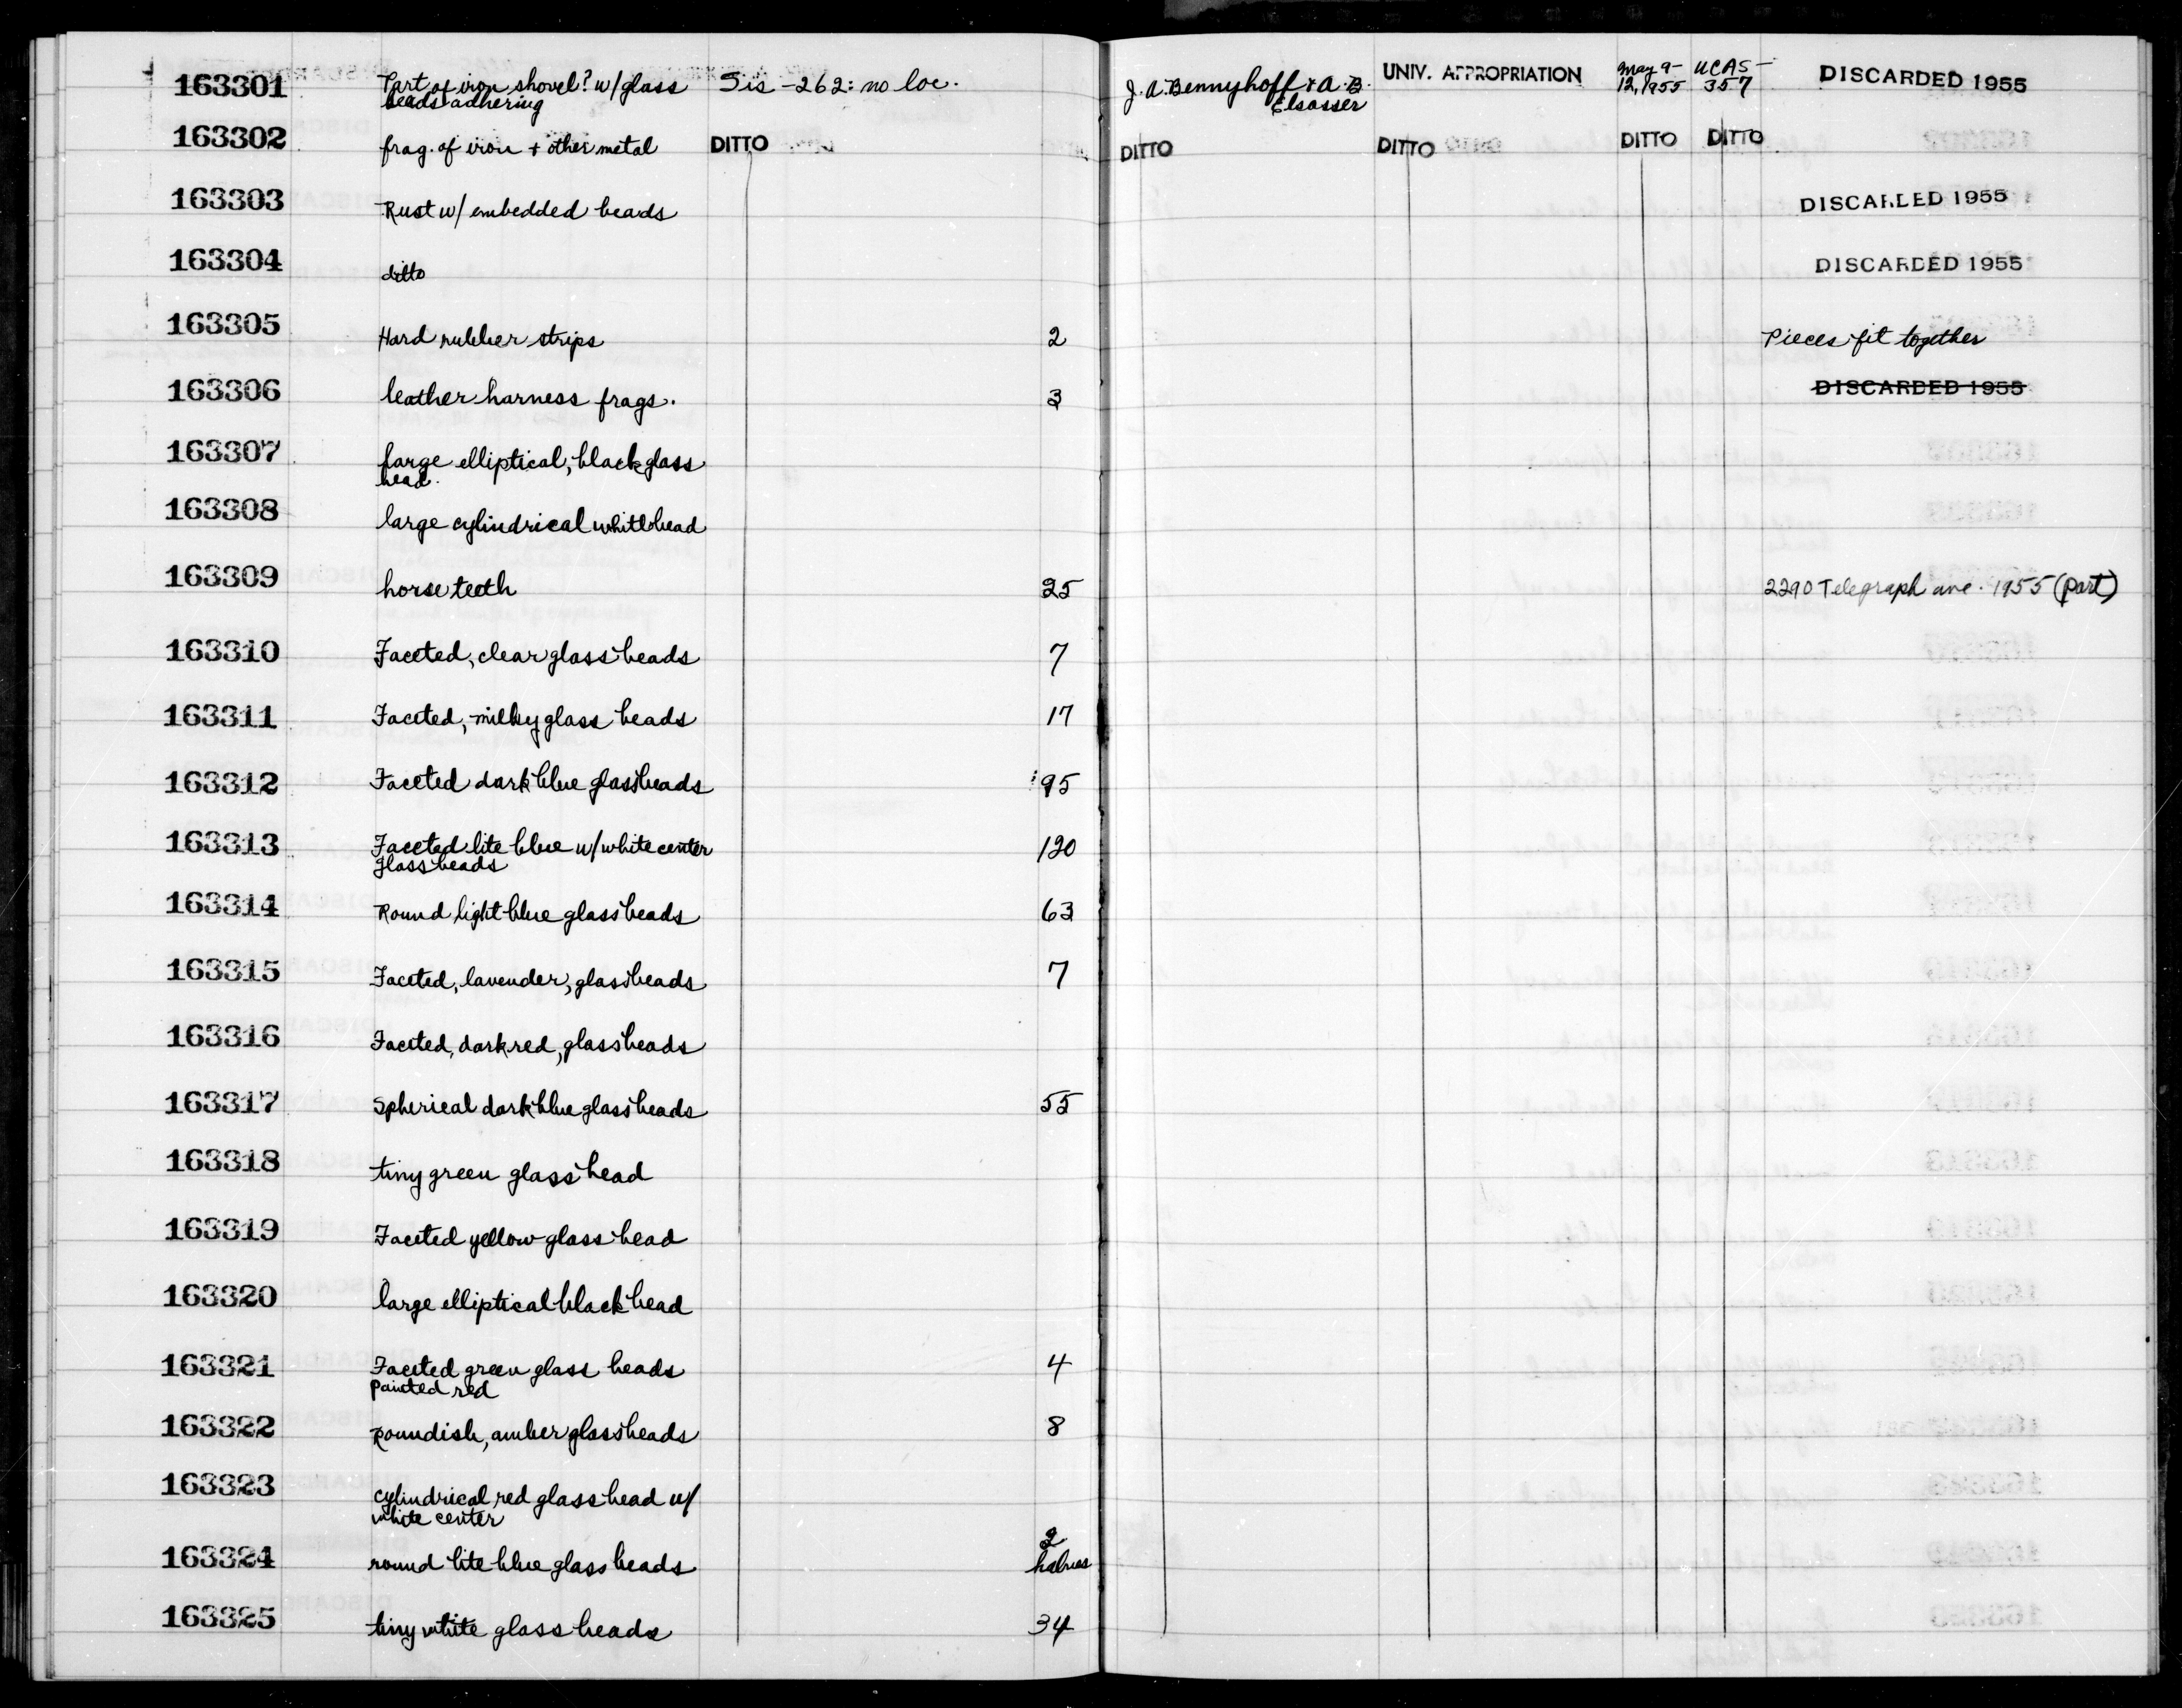 163301 Part of iron shovel? w/glass Sis -262: no loc. J. A. Bennyhoff & A. B. UNIV. APPROPRIATION May 9- UCAS - DISCARDED 1955
beads adhering Elsasser 12, 1955 357
163302 frag. of iron + other metal DITTO DITTO DITTO DITTO DITTO
163303 Rust w/ embedded beads DISCARDED 1955
163304 ditto DISCARDED 1955
163305 Hard rubber strips 2 Pieces fit together
163306 leather harness frags. 3 DISCARDED 1955
163307 large elliptical, black glass
bead.
163308 large cylindrical white bead
163309 horse teeth 25 2290 Telegraph ave. 1955 (part)
163310 Faceted, clear glass beads 7
163311 Faceted, milky glass beads 17
163312 Faceted dark blue glass beads 95
163313 Faceted lite blue w/ white center 120
glass beads
163314 Round light blue glass beads 63
163315 Faceted, lavender, glass beads 7
163316 Faceted, dark red, glass beads
163317 Spherical dark blue glass beads 55
163318 tiny green glass bead
163319 Faceted yellow glass bead
163320 large elliptical black bead
163321 Faceted green glass beads 4
painted red
163322 Roundish, amber glass beads 8
163323 cylindrical red glass bead w/
white center
163324 round lite blue glass beads 2
halves
163325 tiny white glass beads 34